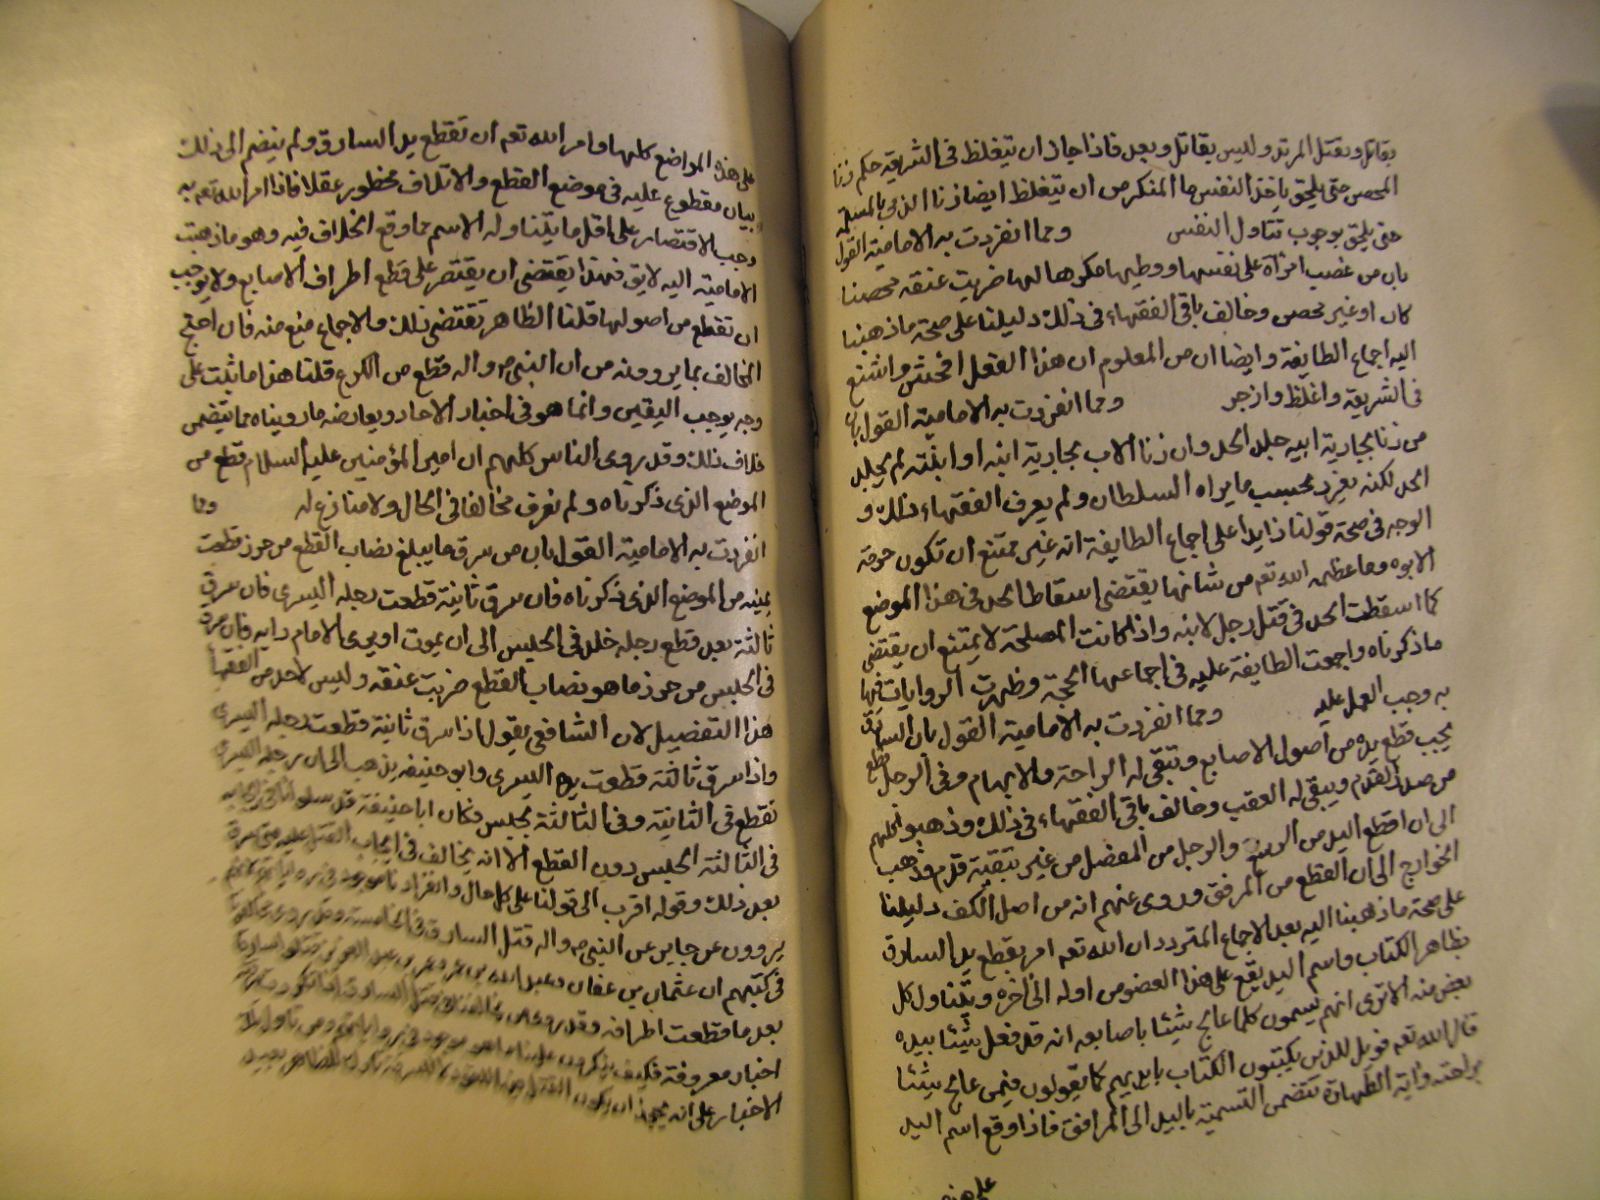 يقاتل ويقتل المرتد وليس يقاتل وبعد فاذا جاز ان تيغلظ فى الشريعة حكم زنا
المحصن حتى يلحق باخذ النفس ما المنكر من ان تيغلظ ايضا زنا الذمى بالمسلمة
حتى يلحق بوجوب تناول النفس ومما انفردت به الامامية القول
بان من غصب امراة على نفسها ووطيها مكرها لها ضربت عنقه محصنا
كان او غير محصن وخالف باقى الفقهاء فى ذلك دليلنا على صحة ما ذهبنا
اليه اجماع الطايفة وايضا ان من المعلوم ان هذا الفعل افحش واشنع
فى الشريعة واغلظ وازجر ومما انفردت به الامامية القول بان
من زنا بجارية ابيه جلد الحد وان زنا الاب بجارية ابنه او ابنته لم يجلد
الحد لكنه يعزر بحسب ما يراه السلطان ولم يعرف الفقهاء ذلك و
الوجه فى صحة قولنا زايدا على اجماع الطايفة انه غير ممتنع ان تكون حرمة
الابوه وما عظمه الله تعم من شانها يقتضى اسقاط الحد فى هذا الموضع
كما اسقطت الحد فى قتل رجل لابنه واذا كانت المصلحة لا يمتنع ان يقتضى
ما ذكرناه واجمعت الطايفة عليه فى اجماعها الحجة وظهرت الروايات فيها
به وجب العمل عليه ومما انفردت به الامامية القول بان السارق
يجب قطع يده من اصول الاصابع وتبقى له الراحة والابهام وفى الرجل قطع
من صدر القدم ويبقى له العقب وخالف باقى الفقهاء فى ذلك وذهبوا كلهم
الى ان اقطع اليد من الرسغ والرجل من المفصل من غير تبقية قدم وذهب
الخوارج الى ان القطع من المرفق وروى عنهم انه من اصل الكف دليلنا
على صحة ما ذهبنا اليه بعد الاجماع المتردد ان الله تعم امر بقطع يد السارق
بظاهر الكتاب واسم اليد يقع على هذا العضو من اوله الى اخره ويتناول كل
بعض منه الا ترى انهم يسمون كلما عالج شيئا باصابعه انه قد فعل شيئا بيده
قال الله تعم فويل للذين يكتبون الكتاب بايديهم كما يقولون فيمن عالج شيئا
براحته واية الطهارة تتضمن التسمية باليد الى المرافق فاذا وقع اسم اليد
على هذه
على هذه المواضع كلها وامر الله تعم ان تقطع يد السارق ولم ينضم الى ذلك
بيان مقطوع عليه فى موضع القطع والاتلاف محظور عقلا فاذا امر الله تعم به
وجب الاقتصار على اقل ما يتناوله الاسم مما وقع الخلاف فيه وهو ما ذهبت
الامامية اليه لايق فهذا يقتضى ان يقتصر على قطع اطراف الاصابع ولا يوجب
ان تقطع من اصولها قلنا الظاهر يقتضى ذلك والاجماع منع منه فان احتج
المخالف بما يروونه من ان النبى ص واله قطع من الكوع قلنا هذا ما ثبت على
وجه يوجب اليقين وانما هو فى اخبار الاحاد ويعارضه ما رويناه مما يتضمن
خلاف ذلك وقد روى الناس كلهم ان امير المؤمنين عليه السلام قطع من
الموضع الذى ذكرناه ولم نعرف مخالفا فى الحال ولا منازع له ومما
انفردت به الامامية القول بان من سرق ما يبلغ نصاب القطع من حرز قطعت
يمينه من الموضع الذى ذكرناه فان سرق ثانية قطعت رجله اليسرى فان سرق
ثالثة بعد قطع رجله خلد فى الحبس الى ان يموت او يرى الامام رايه فان سرق
فى الحبس من حرز ما هو نصاب القطع ضربت عنقه وليس لاحد من الفقهاء
هذا التفصيل لان الشافعى يقول اذا سرق ثانية قطعت رجله اليسرى
واذا سرق ثالثة قطعت يده اليسرى وابو حنيفه يذهب الى ان رجله اليسرى
تقطع فى الثانية وفى الثالثة يحبس فكان ابا حنيفة قد ساوانا فى ايجابه
فى الثالثة الحبس دون القطع الا انه يخالف فى ايجاب القتل عليه متى سرق
بعد ذلك وقوله اقرب الى قولنا على كل حال وانفراد
يروون عن جابر عن النبى ص واله قتل السارق فى الخامسة
فى كتبهم ان عثمان بن عفان وعبد الله بن عمر وعمر بن عبد العزيز قتلوا سارقا
بعد ما قطعت اطرافه وقد روى من
اخبار معروفة فكيف ينكرون علينا ما هو موجود فى رواياتهم ومن تاول
الاخبار على انه يجوز ان يكون القتل